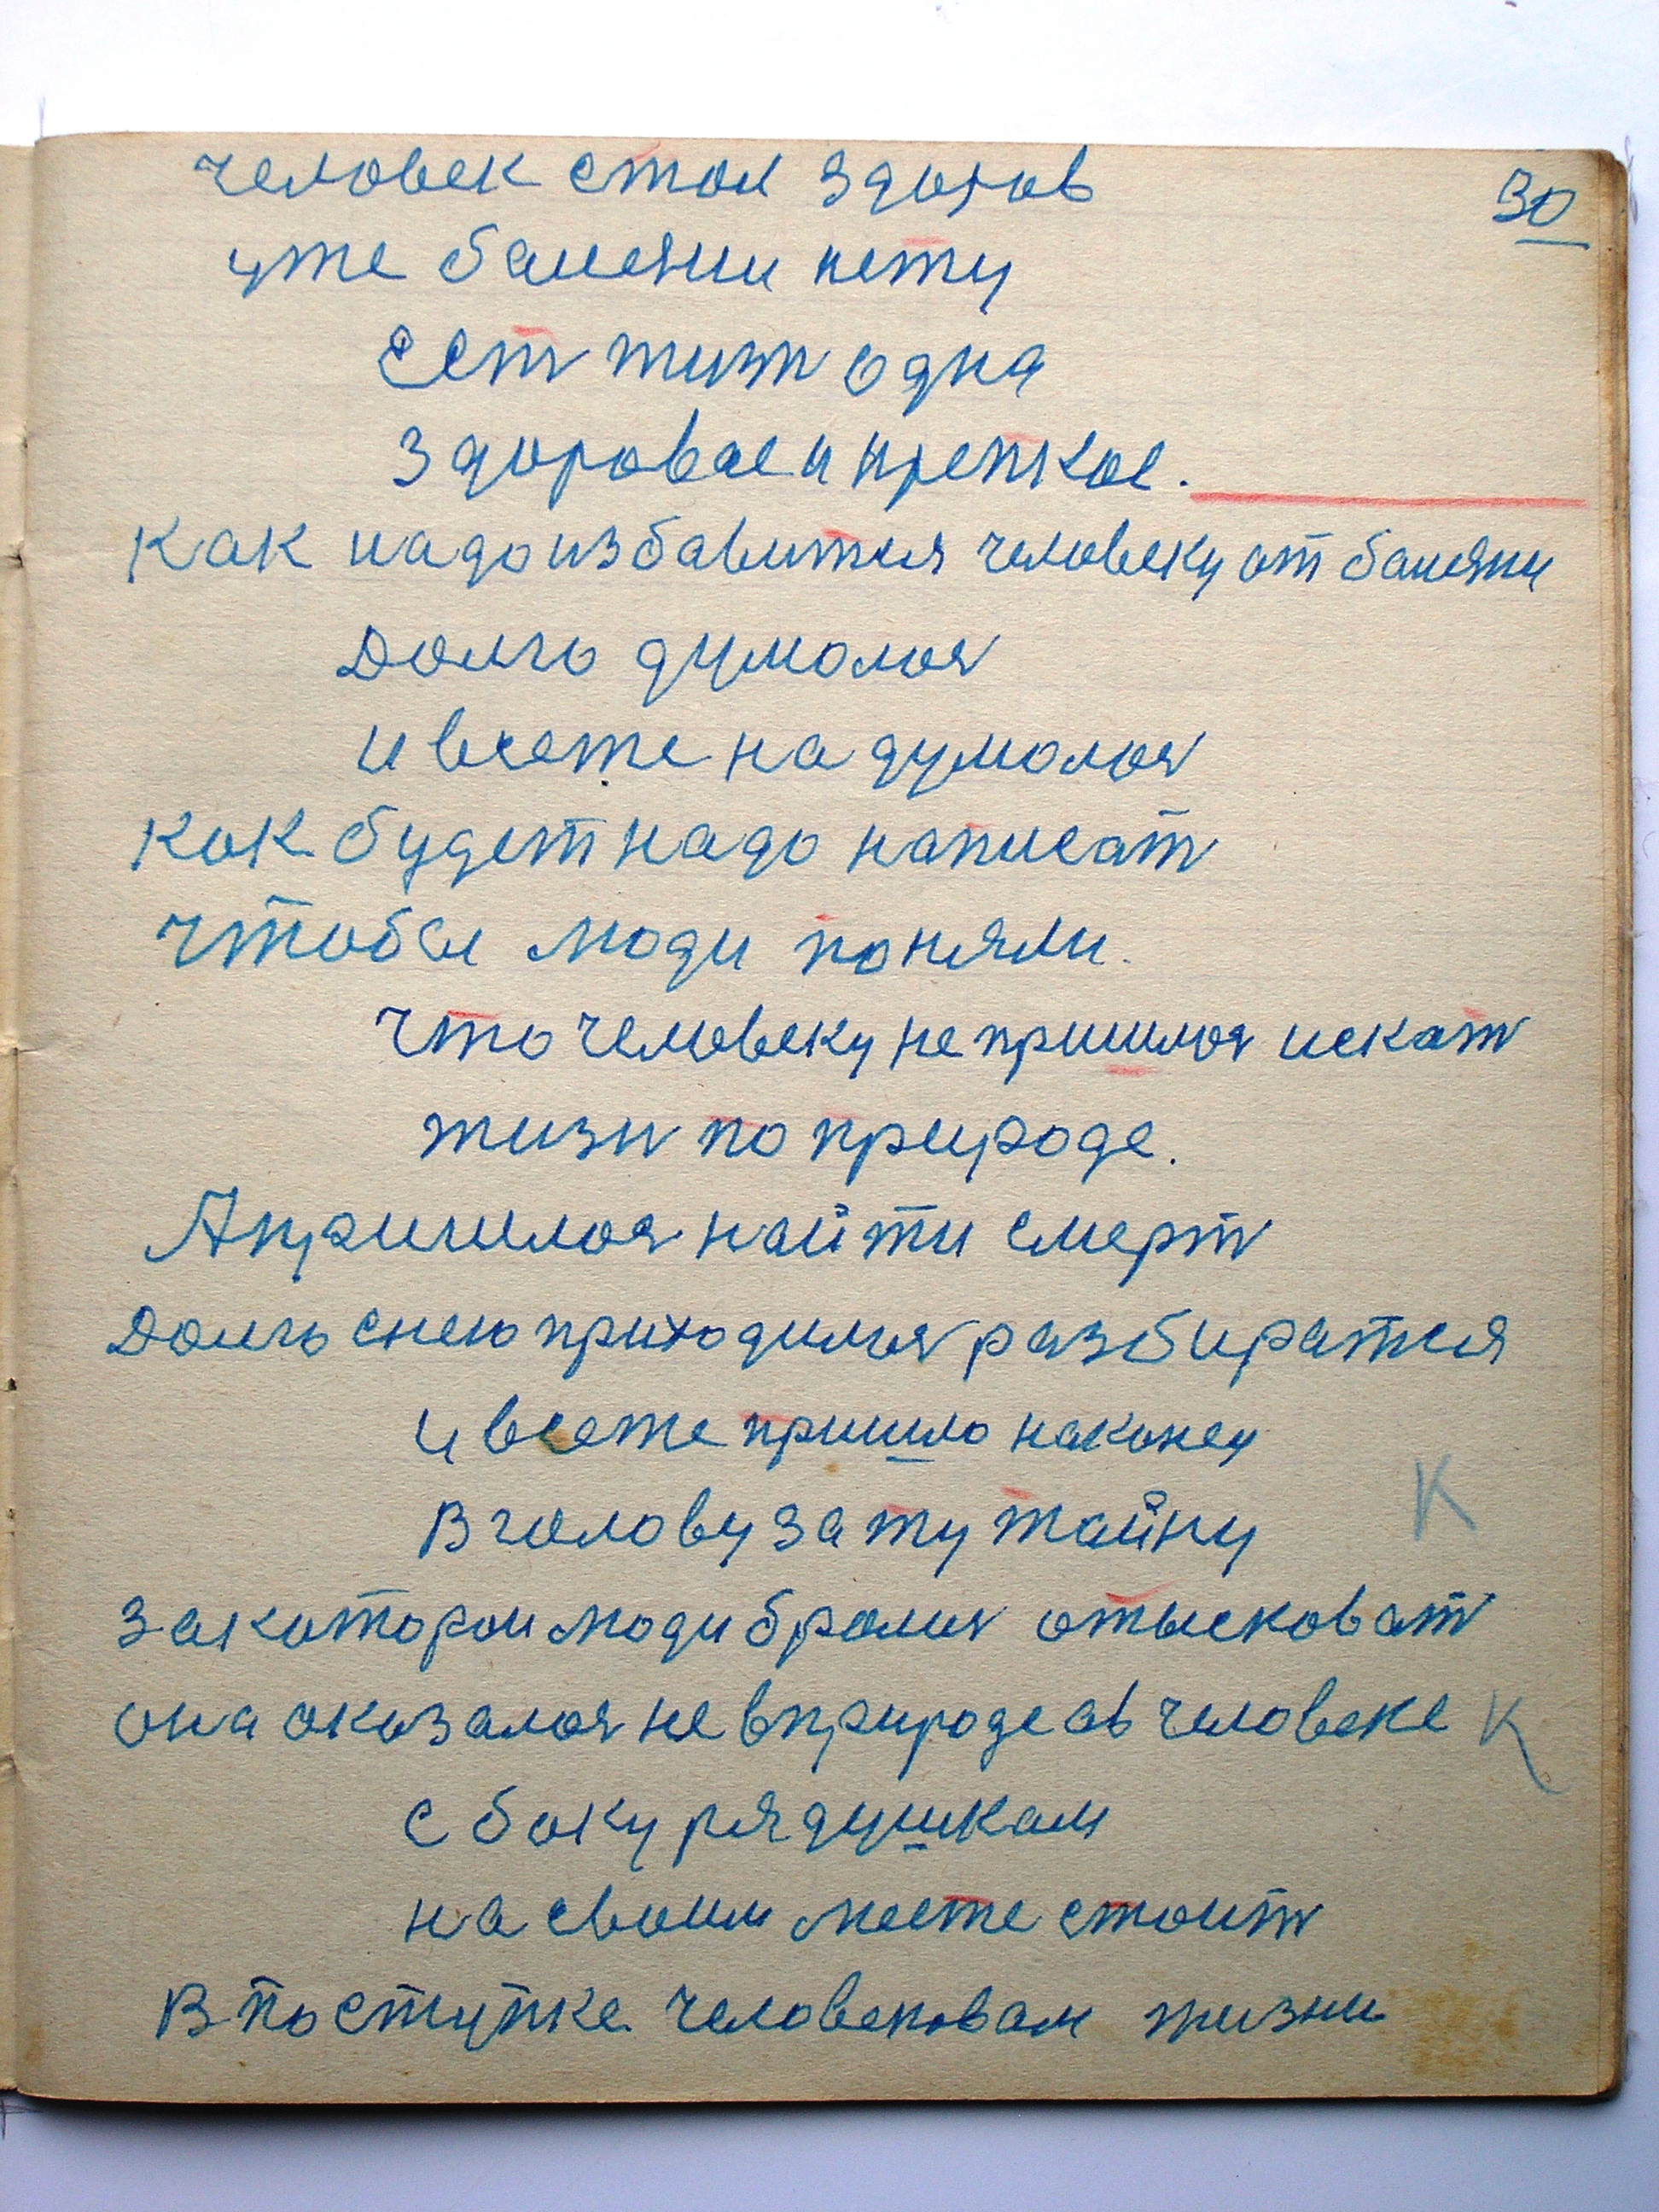 30
человек стол здоров
уже балезни нету
Ест жизн одна
здоровае и крепкое.
Как надо избавится человеку от балезни
Долго думолося
и все же надумолося
Как будет надо написат
Чтобы люди поняли.
Что человеку не пришлося искат
жизн по природе.
А пришлося найти смерт
Долгоснею приходилося разбиратся
и все же пришло наконец
В голову за ту тайну
За котором люди бролися отысковат
она оказалося не вприроде ав человеке
с боку рядушкам
на своим месте стоит
В поступке человековам жизни
К
К